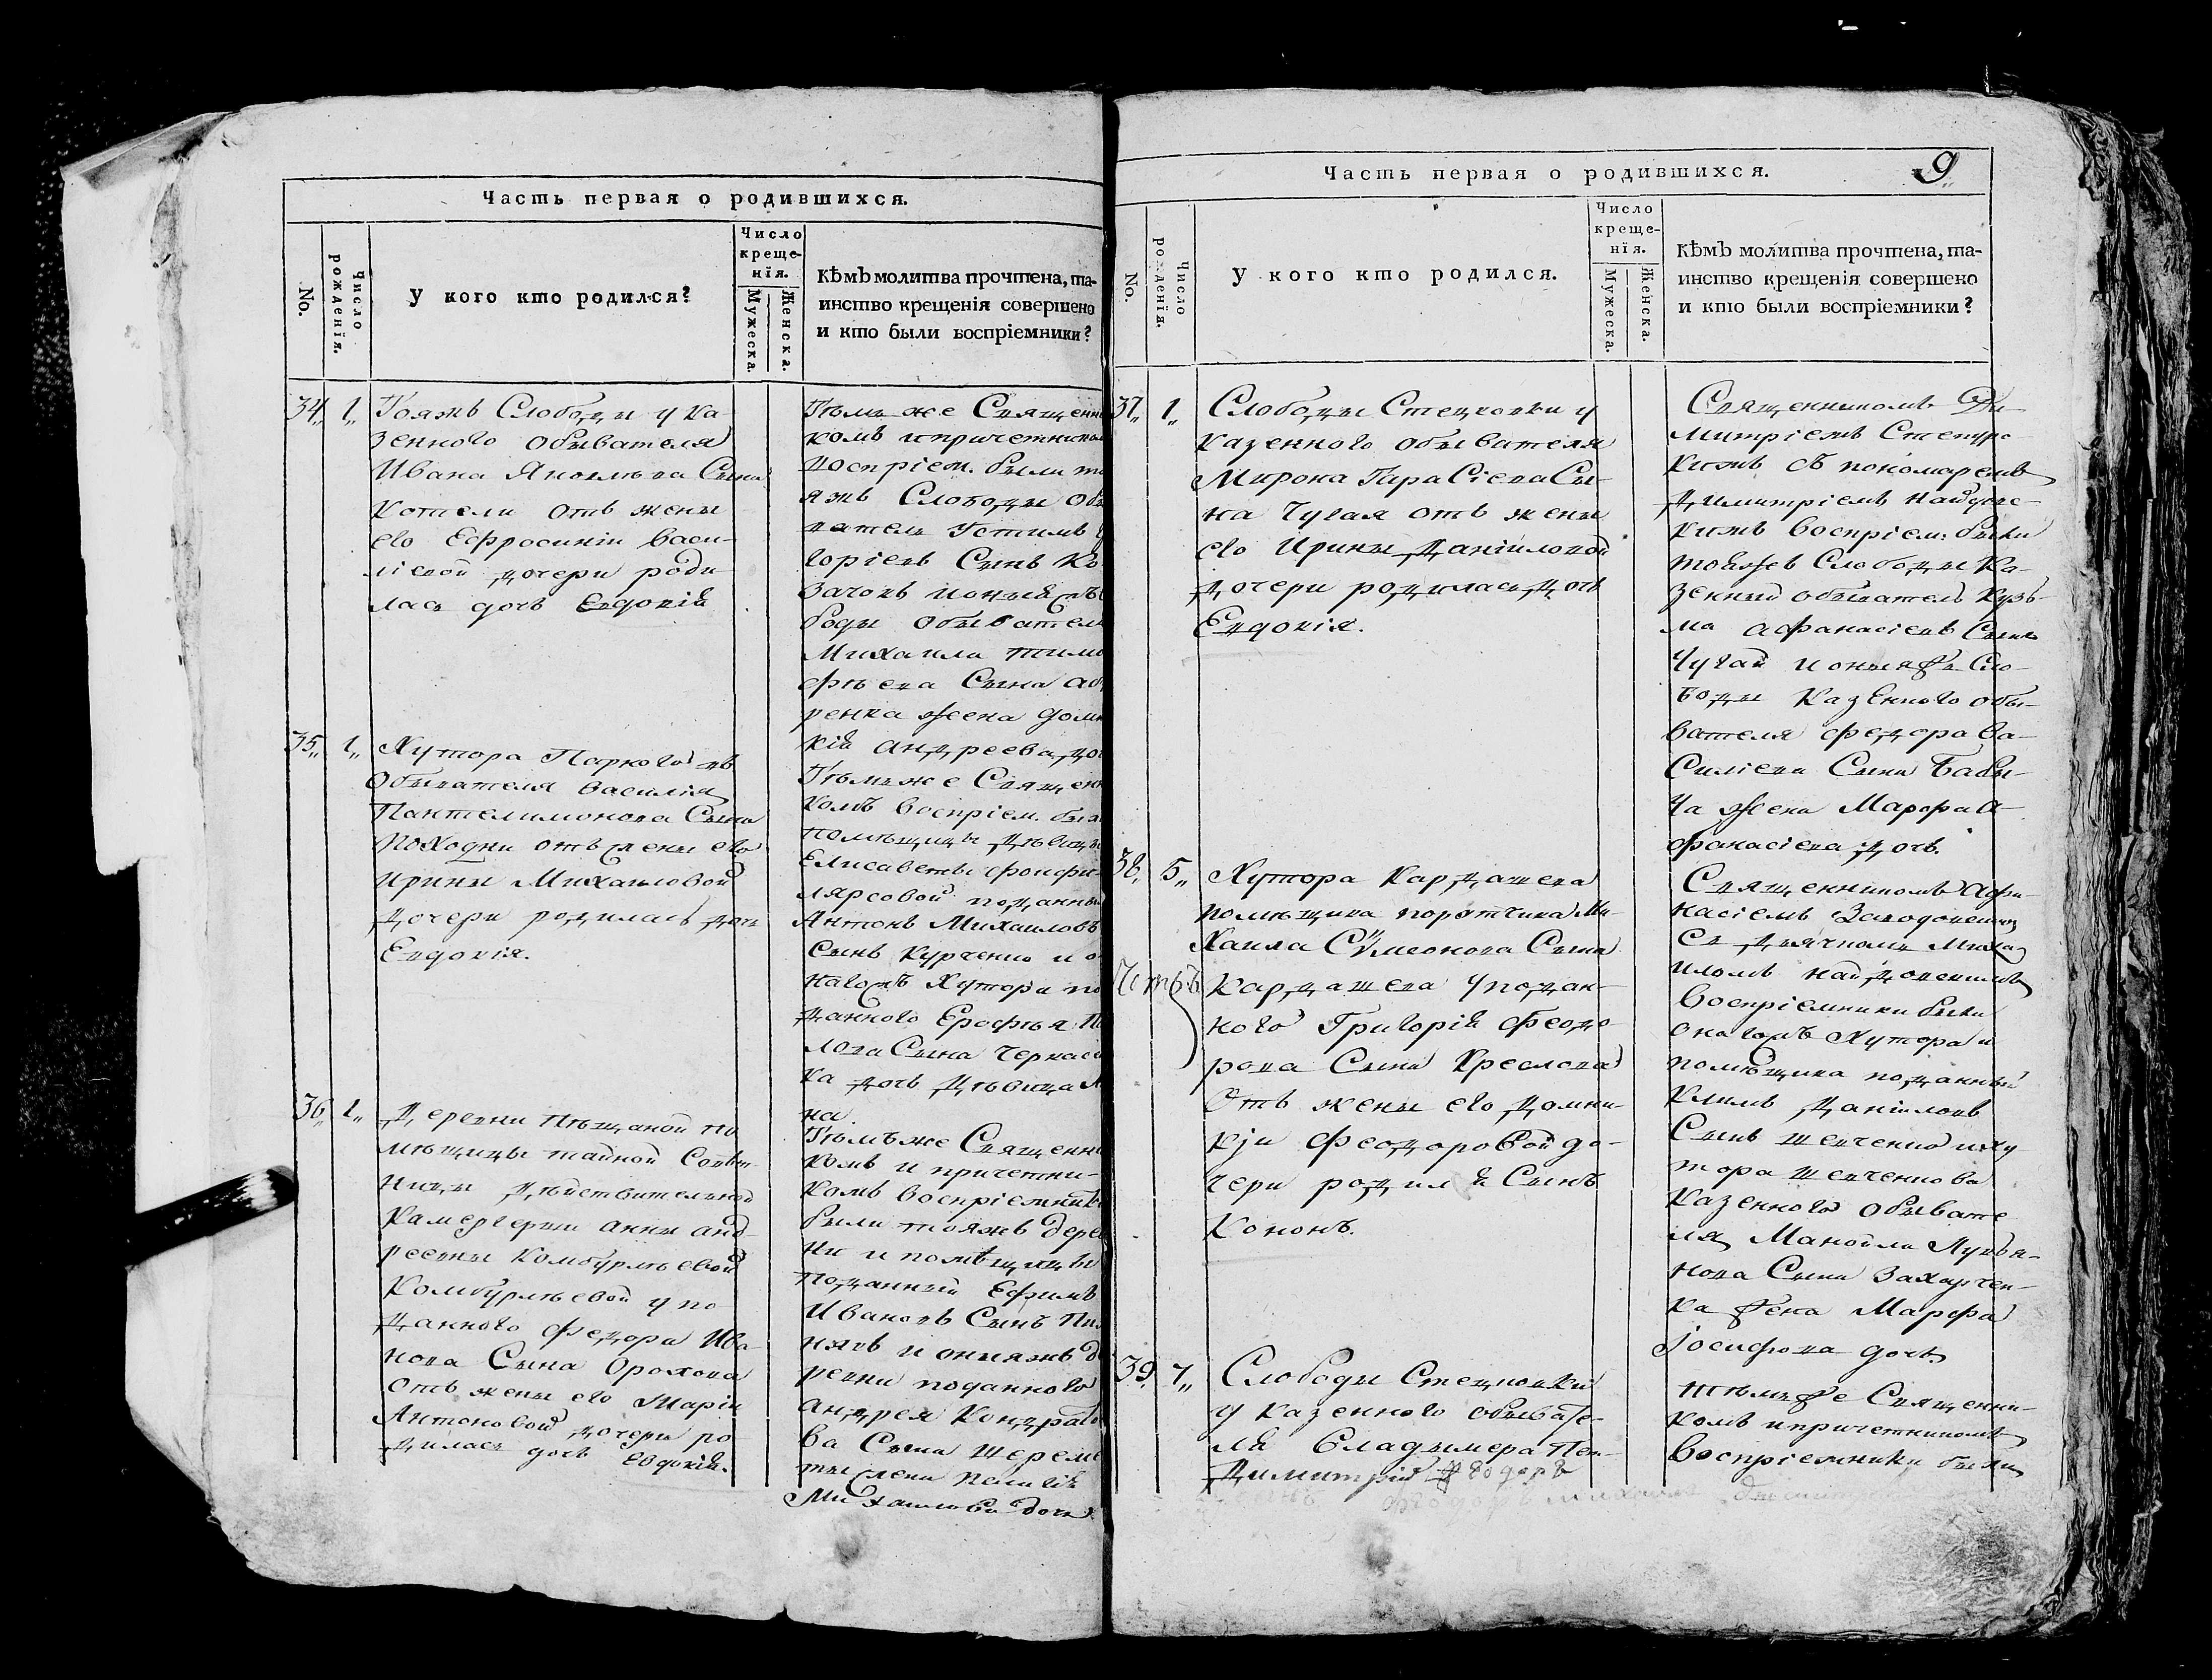 Часть первая о родившихся.
No.
Число рожденїя.
У кого кто родился?
Число креще-нїя.
Мужеска.
Женска.
Кѣмъ молитва прочтена, та-
инство крещенія совершено
и кто были воспріемники?
34„ 1„ Тояжъ Слободы у ка
зенного обывателя
Ивана Яковлева Сына
Котели отъ жены
его Ефросиніи Васи-
ліевой дочери роди
лась дочь Евдокія
Тѣмъ же Священни
комъ и причетником
воспріем. были то
яжъ Слободы обы
ватель Устимъ
горіевъ Сынъ Ко
зачокъ и
боды обывателя
Михаила Тимо
фѣева Сына
ренка жена Домни
кія Андреева до
35„ 1„ Хутора Паркого
обывателя Василія
Пантелимонова Сына
Походни отъ жены его
Ирины Михаиловой
дочери родилась дочь
Евдокія.
Тѣмъ же Священни
комъ воспріем. был
помѣщицы дѣвицы
Елисаветы
подданный
Антонъ Михаиловъ
Сынъ Курченко и о
нагожъ Хутора по
данного Ерофѣя
лова Сына Черкаси
ка дочь дѣвица
на
36„ 1„ Деревни Пѣщаной по
мѣщицы тайной Совѣт
ницы дѣйствительной
Камергерши Анны Анд
реевны Комбурлѣевой
Комбурлѣевой у по
данного Федора Ива
нова Сына Орохова
отъ жены его Маріи
Антоновой дочери ро
дилась дочь Евдокія.
Тѣмъ же Священни
комъ и причетни-
комъ воспріемники
были тояжъ дерев
ни и помѣщицы
поданный Ефимъ
Ивановъ Сынъ
и оныяжъ де
ревни поданного
Андрея Кондрато
ва Сына Шереме
ты жена Пелагія
Михаилова дочь
Часть первая о родившихся.
9
No.
Число рожденїя.
У кого кто родился.
Число креще-нїя.
Мужеска.
Женска.
Кѣмъ молитва прочтена, та-
инство крещенія совершено
и кто были воспріемники?
37„ 1„ Слободы Стецковки у
казенного обывателя
Мирона Тарасіева Сы-
на Чугая отъ жены
его Ирины Даніиловой
дочери родилась дочь
Евдокія.
Священникомъ Ди-
митріемъ
кимъ съ пономаремъ
Димитріемъ Найдовс-
кимъ воспріем: были
тояжъ Слободы Ка-
зенный обыватель Кузь-
ма Афанасіевъ Сынъ
Чугай и оныяжъ Сло-
боды казенного обы-
вателя Федора Ва-
силіева Сына Бабы-
ча жена Марфа А-
фанасіева дочь.
38„ 5„ Хутора Кардашева
помѣщика поручика Ми-
хаила Сѵмеонова Сына
Кардашева у подан-
ного Григорія Феодо-
рова Сына Креслова
отъ жены его Домни-
кіи Феодоровой до-
чери родился Сынъ
Кононъ.
Священникомъ Афа-
насіемъ
съ дьячкомъ Миха
иломъ
воспріемники были
онагожъ Хутора и
помѣщика поданный
Климъ Даніиловъ
Сынъ Шевченко и ху
тора Шевченкова
казенного обывате
ля Мануила Лукья-
нова Сына Захарчен-
ка жена Марфа
Іосифова дочь
39„ 7„ Слободы Стецковки
у казенного обывате-
ля Владымера
Димитрій Федоръ
тѣмъ же Священни-
комъ и причетникомъ
воспріемники были